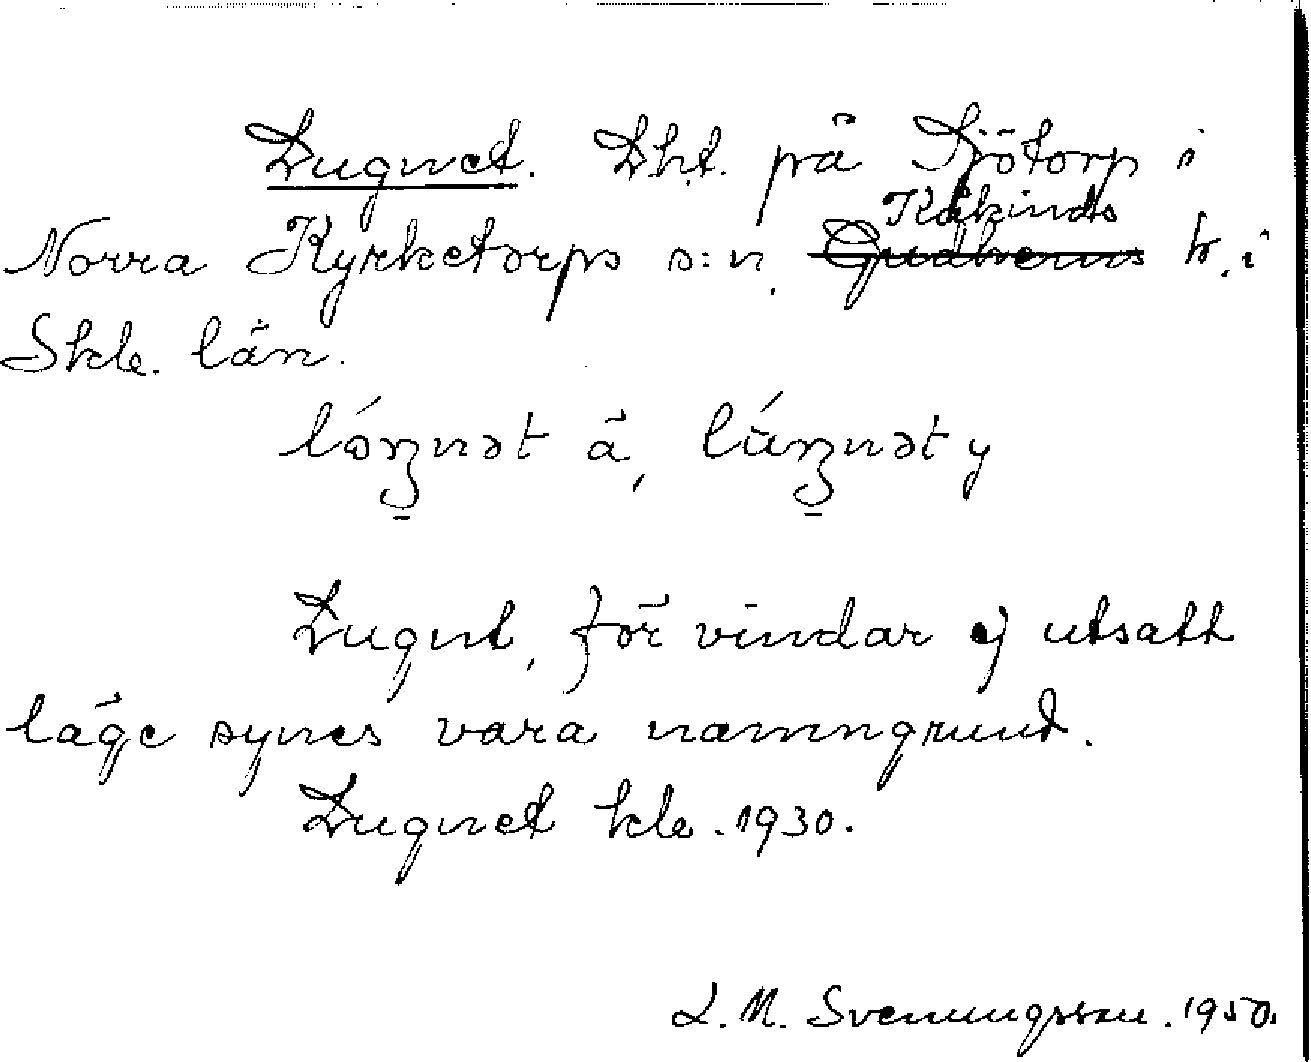 Lugnet. Lht. på Sjötorp i
Kåkinds
Norra Kyrketorps s:n, Gudhems h. i
Skb. län.
lóŋnət ä, lúŋnət y
Lugnt, för vindar ej utsatt
läge synes vara namngrund.
Lugnet kb. 1930.
L. M. Svenungsson. 1950.